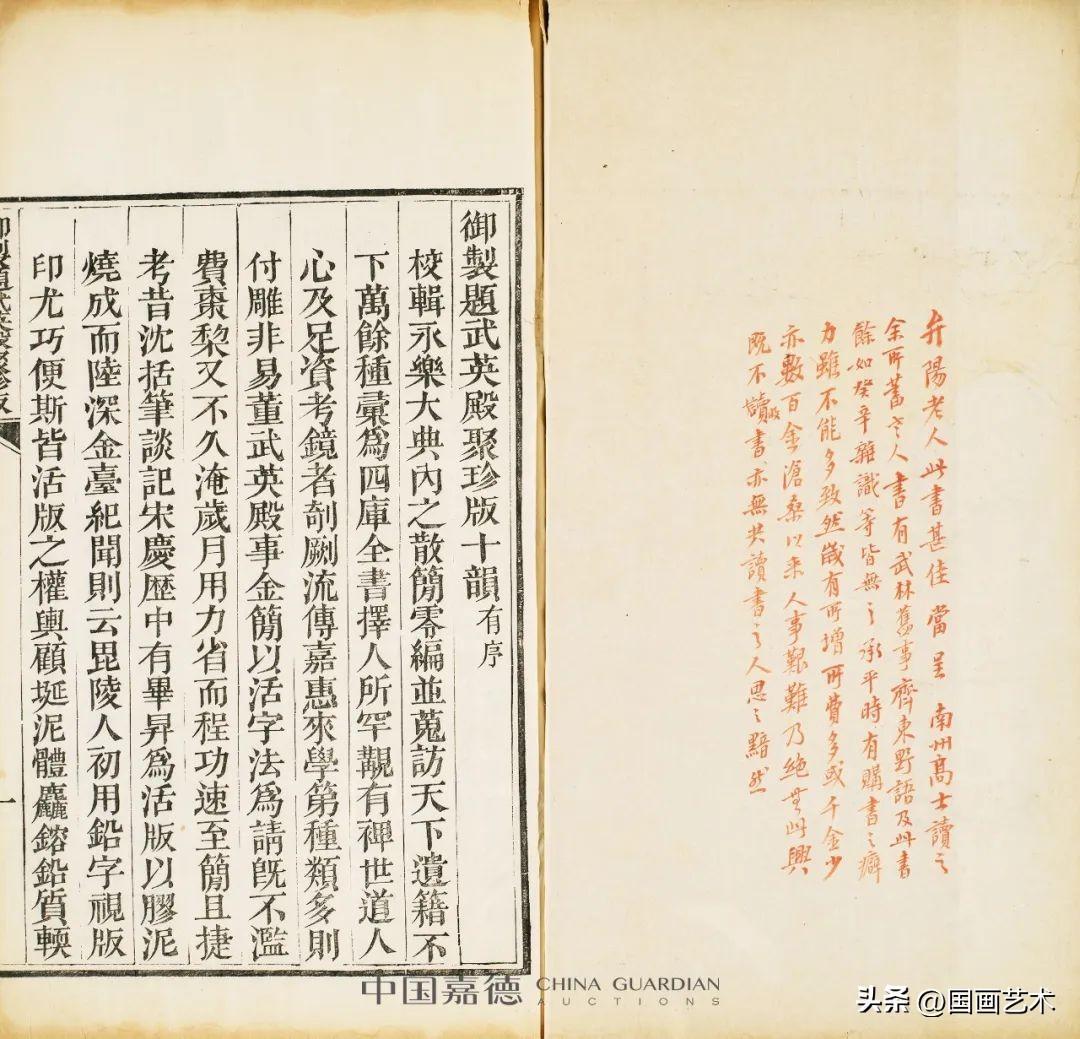 弁陽老人此書甚佳當呈 南州高士讀之
余所蓄老人書有武林舊事齊東野語及此書
餘如癸辛雜識等皆無之承平時有購書之癖
力雖不能多致然歲有所增所費多或千金少
亦數百金滄桑以來人事艱難乃絕無此興
既不讀書亦無共讀書之人思之黯然
御製題武英殿聚珍版十韻有序
校輯永樂大典內之散簡零編並蒐訪天下遺籍不
下萬餘種彙為四庫全書擇人所罕覯有裨世道人
心及足資考鏡者剞劂流傳嘉惠來學第種類多則
付雕非易董武英殿事金簡以活字法為請既不濫
費棗棃又不久淹歲月用力省而程功速至簡且捷
考昔沈括筆談記宋慶歷中有畢昇為活版以膠泥
燒成而陸深金臺紀聞則云毘陵人初用鉛字視版
印尤巧便斯皆活版之權輿顧埏泥體麤鎔鉛質輭
御製題武英殿聚珍版
一
中国嘉德 CHINA GUARDIAN
AUCTIONS
头条 @国画艺术